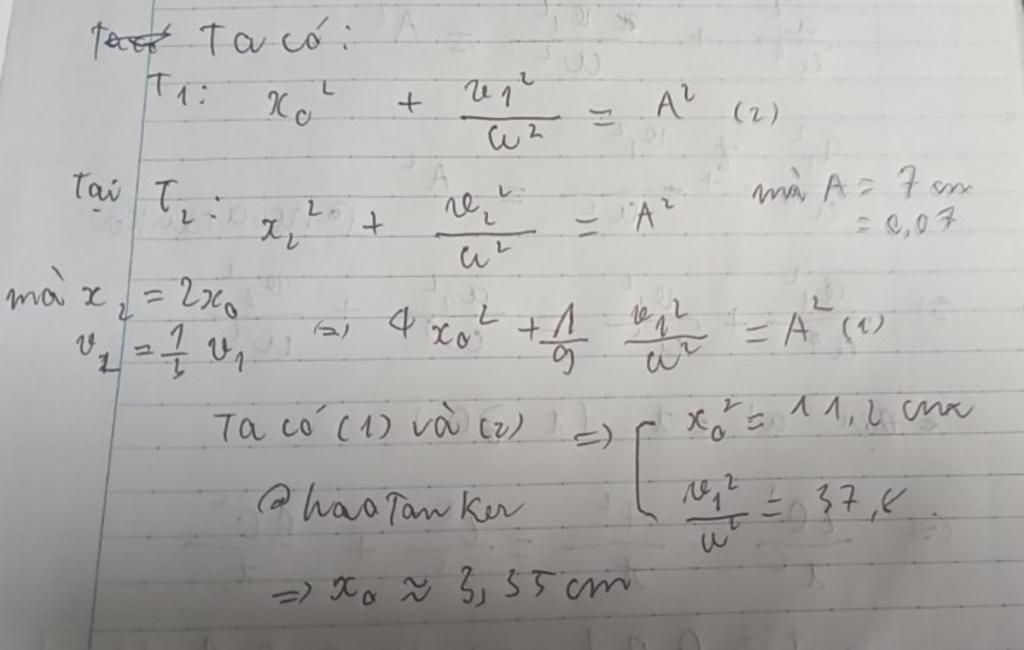 Ta có:
T1: x₀² + v₁²/ω² = A² (2)
Tại T₂: x₂² + v₂²/ω² = A² mà A = 7 cm
= 0,07
mà x₂ = 2x₀
v₂ = 1/3 v₁ => 4x₀² + 1/9 v₁²/ω² = A² (1)
Ta có (1) và (2) => x₀² = 11,2 cm
@haoTanKer v₁²/ω² = 37,8
=> x₀ ≈ 3,35 cm